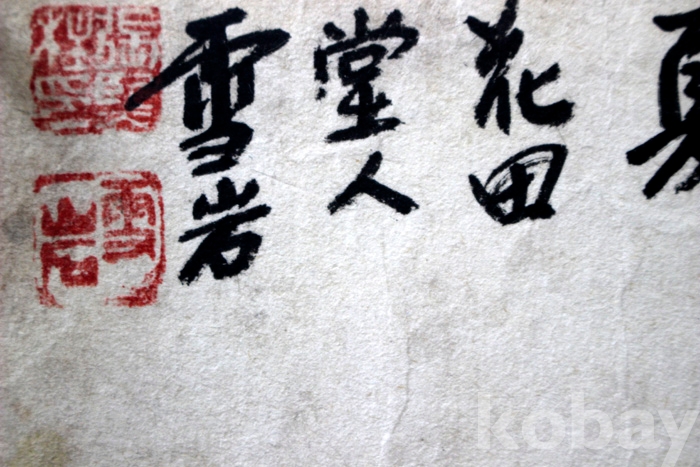 夏
花田
堂人
雪岩
雪岩
kobay